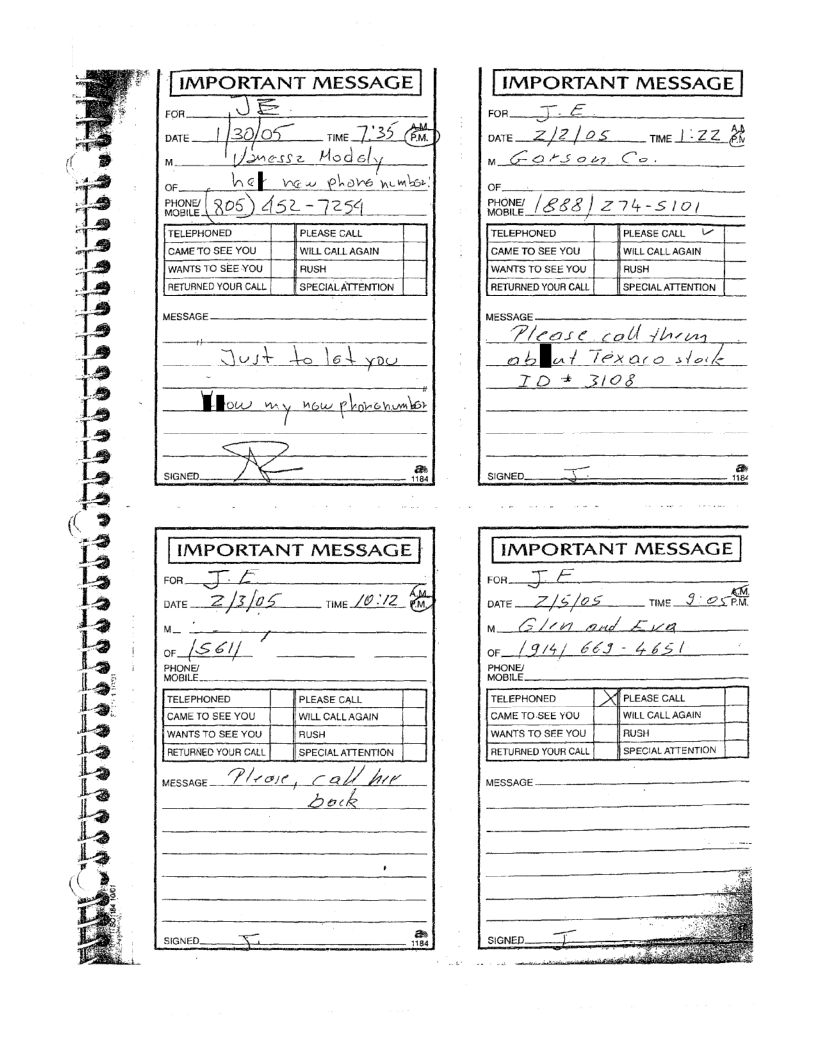 IMPORTANT MESSAGE
FOR JE
DATE 1/30/05 TIME 7:35 A.M. P.M.
M Vanessa
OF her new phone number.
PHONE/ MOBILE (805) 452-7254
TELEPHONED PLEASE CALL
CAME TO SEE YOU WILL CALL AGAIN
WANTS TO SEE YOU RUSH
RETURNED YOUR CALL SPECIAL ATTENTION
MESSAGE
Just to let you
now my new phonenumber
SIGNED
1184
IMPORTANT MESSAGE
FOR J. E.
DATE 2/2/05 TIME 1:22
M Garson Co.
OF
PHONE/ MOBILE (888) 274-5101
TELEPHONED PLEASE CALL ✓
CAME TO SEE YOU WILL CALL AGAIN
WANTS TO SEE YOU RUSH
RETURNED YOUR CALL SPECIAL ATTENTION
MESSAGE
Please call them
ab ut Texaco stock
ID # 3108
SIGNED J.
1184
IMPORTANT MESSAGE
FOR J. E
DATE 2/3/05 TIME 10:12 A.M. P.M.
M
OF (561)
PHONE/ MOBILE
TELEPHONED PLEASE CALL
CAME TO SEE YOU WILL CALL AGAIN
WANTS TO SEE YOU RUSH
RETURNED YOUR CALL SPECIAL ATTENTION
MESSAGE Please, call her
back
SIGNED J.
1184
IMPORTANT MESSAGE
FOR J. E
DATE 2/5/05 TIME 9:05 A.M. P.M.
M Glen and Eva
OF (914) 669-4651
PHONE/ MOBILE
TELEPHONED X PLEASE CALL
CAME TO SEE YOU WILL CALL AGAIN
WANTS TO SEE YOU RUSH
RETURNED YOUR CALL SPECIAL ATTENTION
MESSAGE
SIGNED J